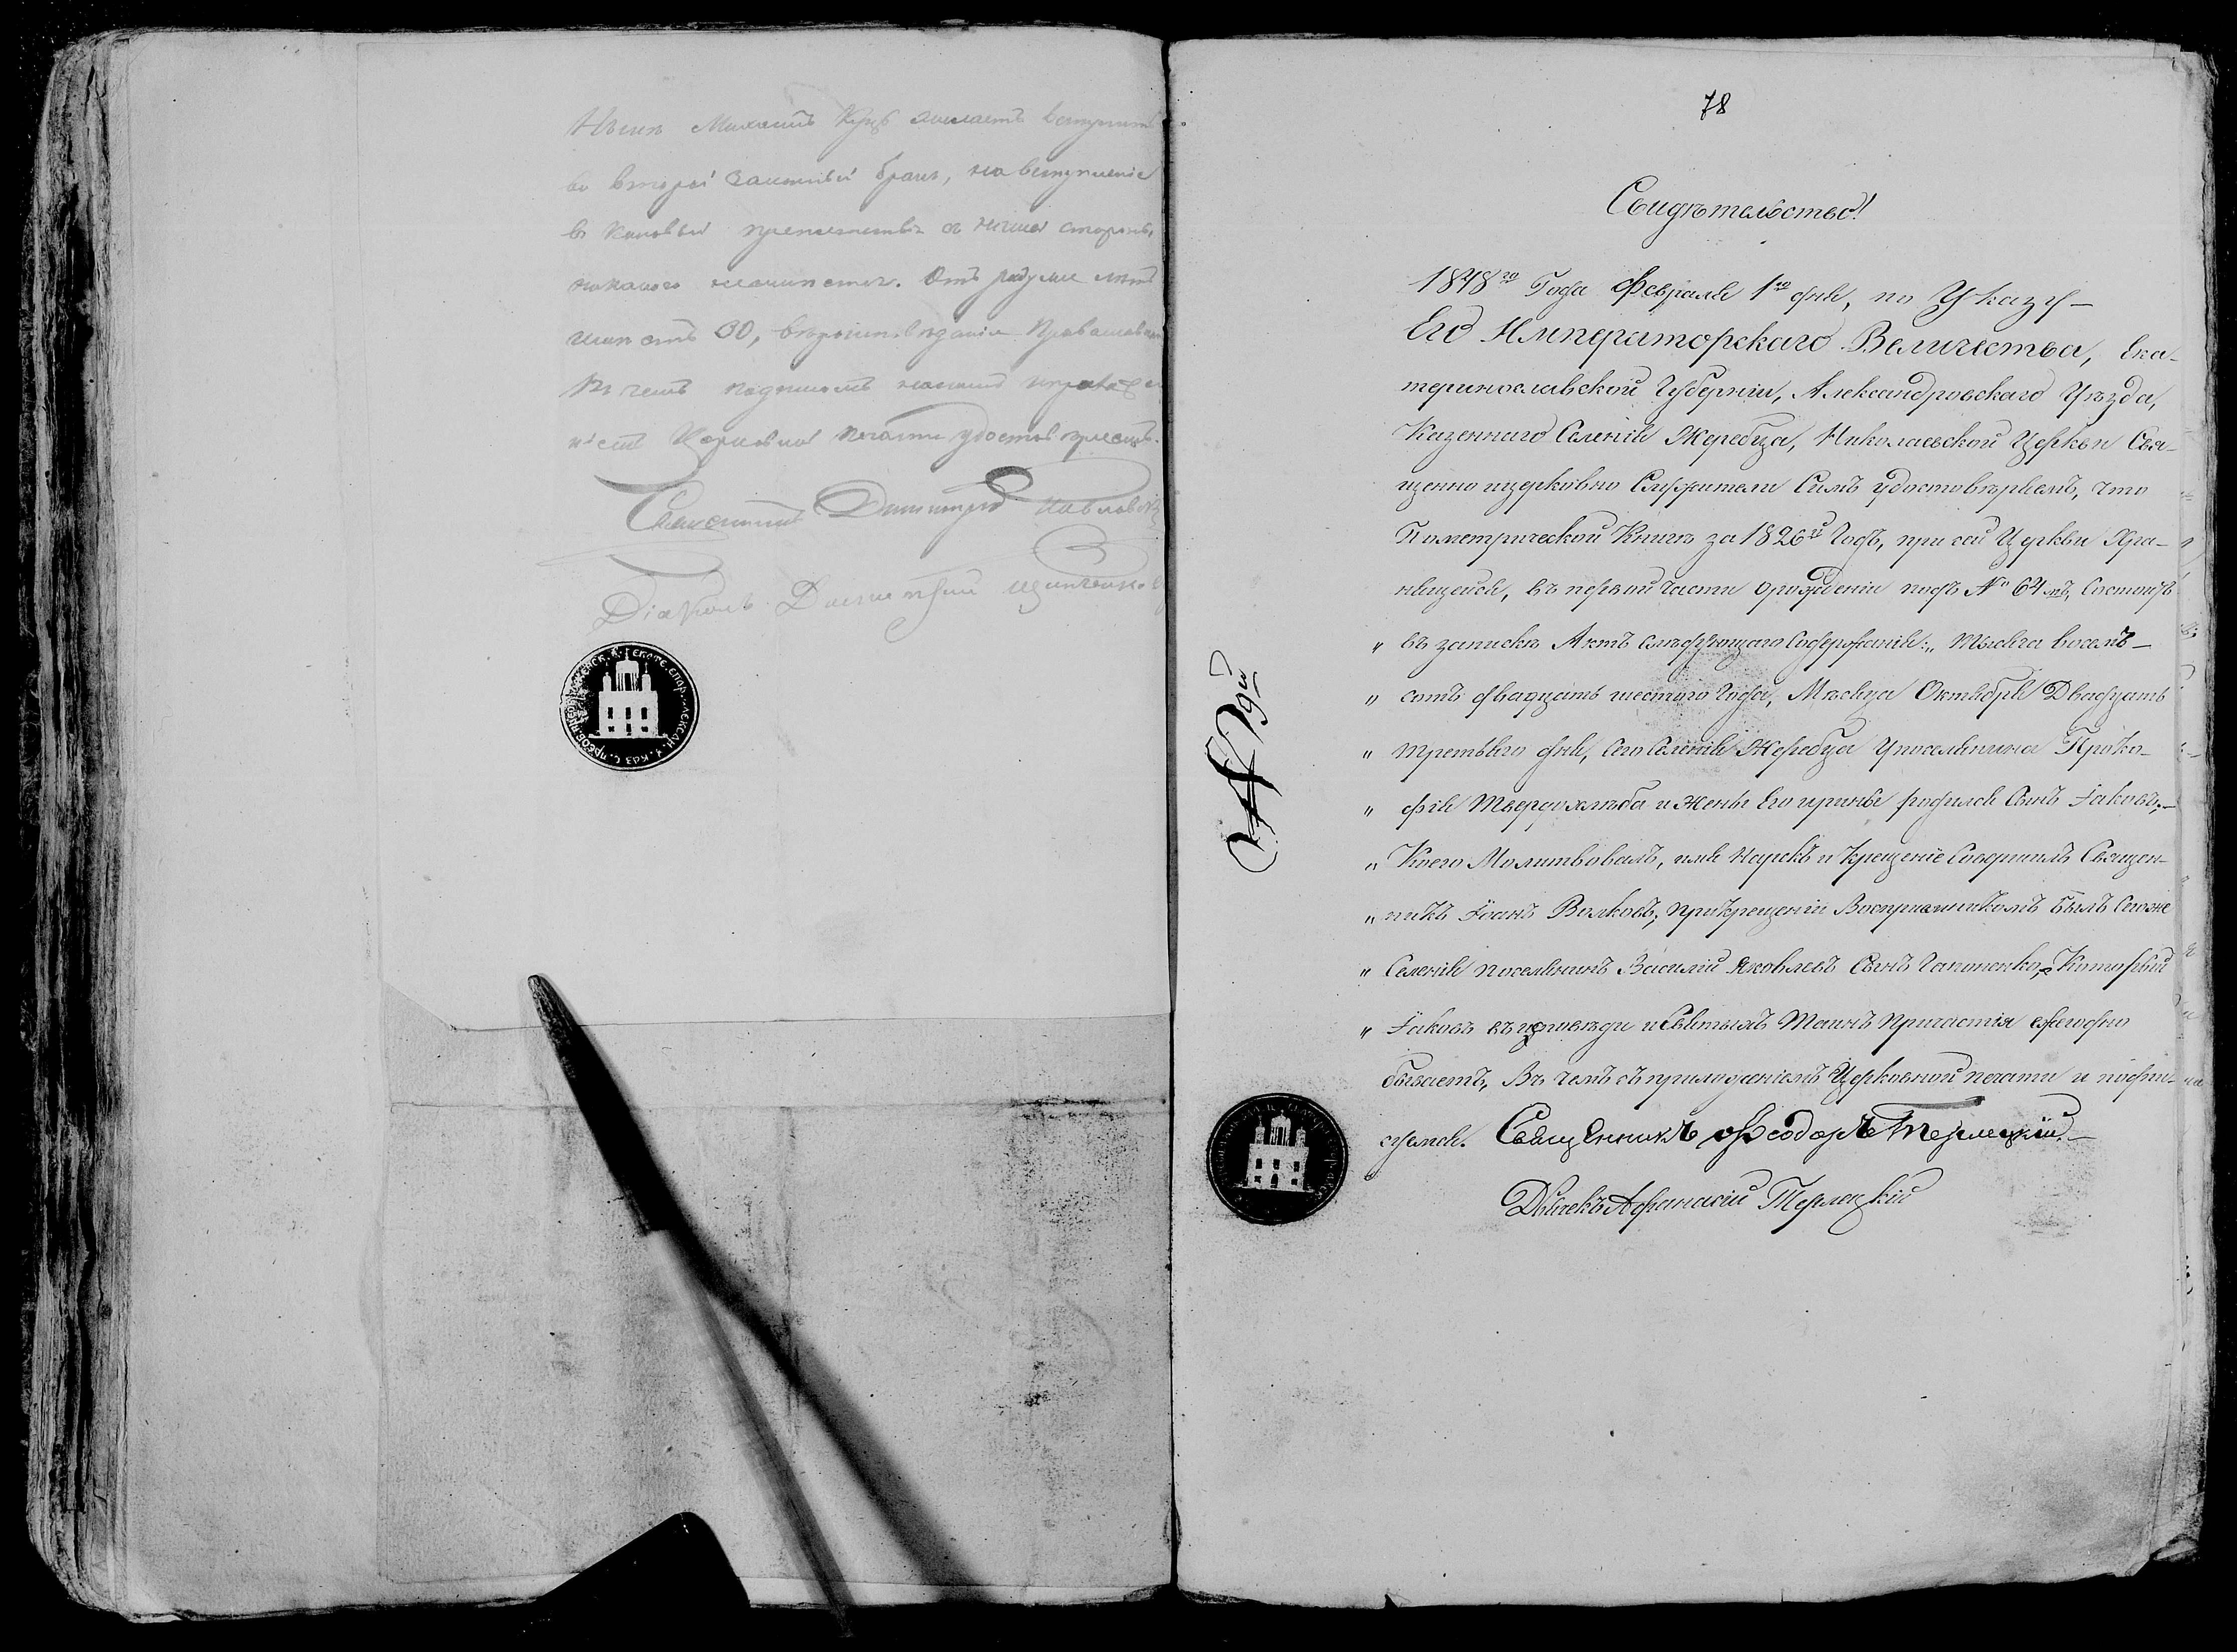 Михаилъ Куцъ желаетъ вступить
во второй законный бракъ, на вступленіе
в каковый препятствія с нашей стороны,
никакого неимеется. Отъ роду ему летъ
30, вероисповеданія Православнаго
В чемъ подписомъ нашимъ
Церковной печати удостоверяемъ.
Священникъ Димитрій Павловскій
Діаконъ Димитрій
78
Свидѣтельство!
1848го Года Февраля 1го дня, по Указу
Его Императорскаго Величества, Ека-
теринославской Губерніи, Александровскаго Уѣзда,
Казеннаго Селенія Жеребца, Николаевской Церкви Свя-
щенно ицерковно Служители Симъ удостовѣряемъ, что
Пометрической Книгѣ за 1826й Годъ, при сей Церкви Хра-
нящейся, въ первой части орожденіи подъ № 64мъ, Состоитъ
„ въ запискѣ Актъ слѣдующаго Содержанія: „ Тысяча восемъ-
„ сотъ двадцать шестого Года, Мѣсяца Октября Двадцать
„ третьяго дня, Сего Селенія Жеребца Упоселянина Проко-
„ фія Твердохлѣба и Жены Его ирины родился Сынъ Іаковъ;-
„ Коего Молитвовалъ, имя Нарекъ и Крещеніе Совершилъ Священ-
„ никъ Іоанъ Волковъ; прикрещеніи Воспріемникомъ былъ Сегоже
„ Селенія поселянинъ Василій Яковлевъ Сынъ Гапоненко, Который
„ Іаковъ въ исповѣди и Святыхъ Таинъ Причастія ежегодно
бываетъ, Въ чемъ съ приложеніемъ Церковной печати и подпи-
суемся. Священникъ Феодоръ Терлецкій.
Дьячекъ Афанасій Терлецкій